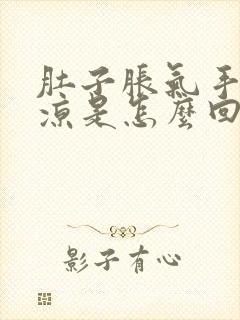 肚子脹氣手
涼是怎麼回
影子有心